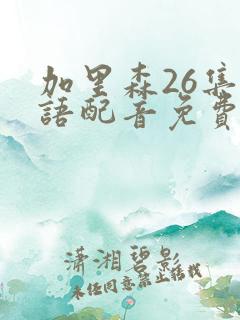 加里森26集
語配音免費
瀟湘碧影
未经同意禁止转载